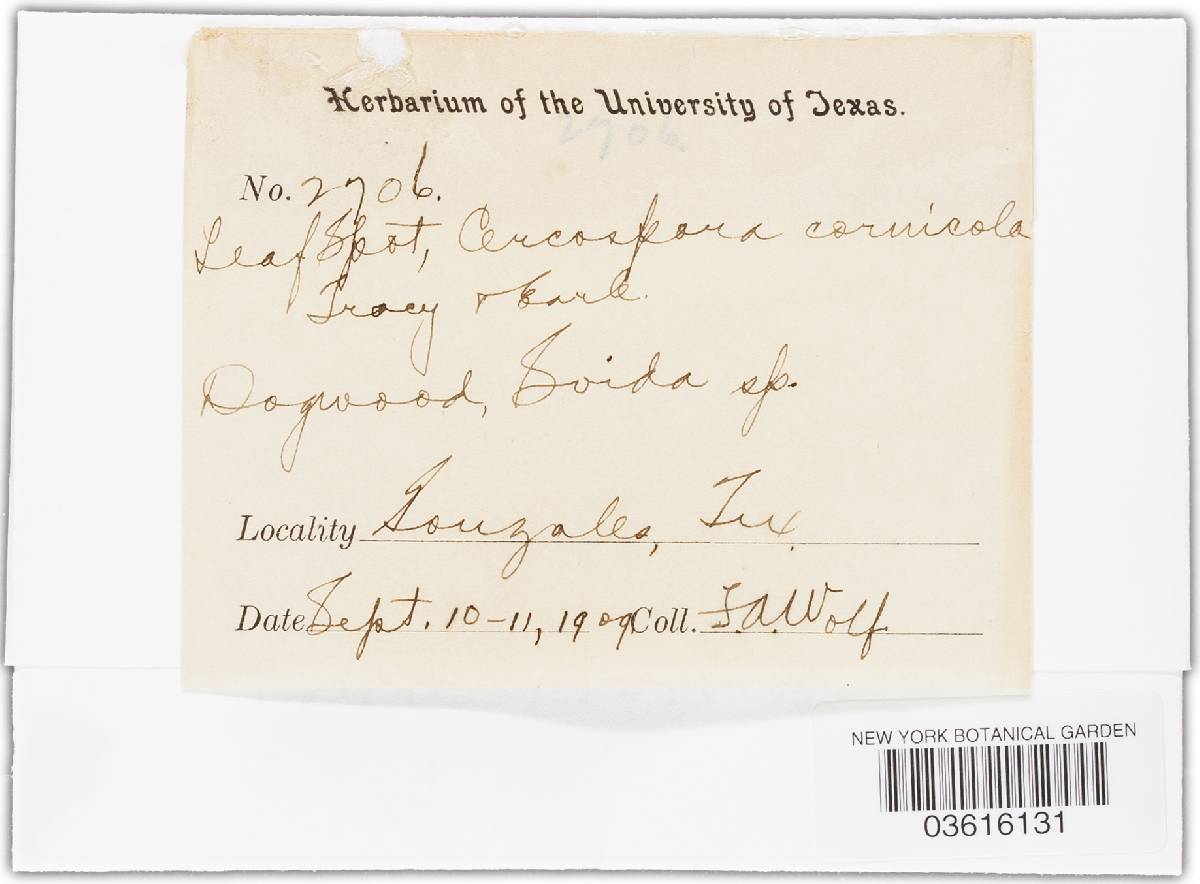 Herbarium of the University of Texas.
2706.
No. 2706.
Leaf Spot, Cercospora cornicola
Tracy & Earle.
Dogwood, Svida sp.
Locality Gonzales, Tex.
Date Sept. 10-11, 1909 Coll. F.A. Wolf.
NEW YORK BOTANICAL GARDEN
03616131